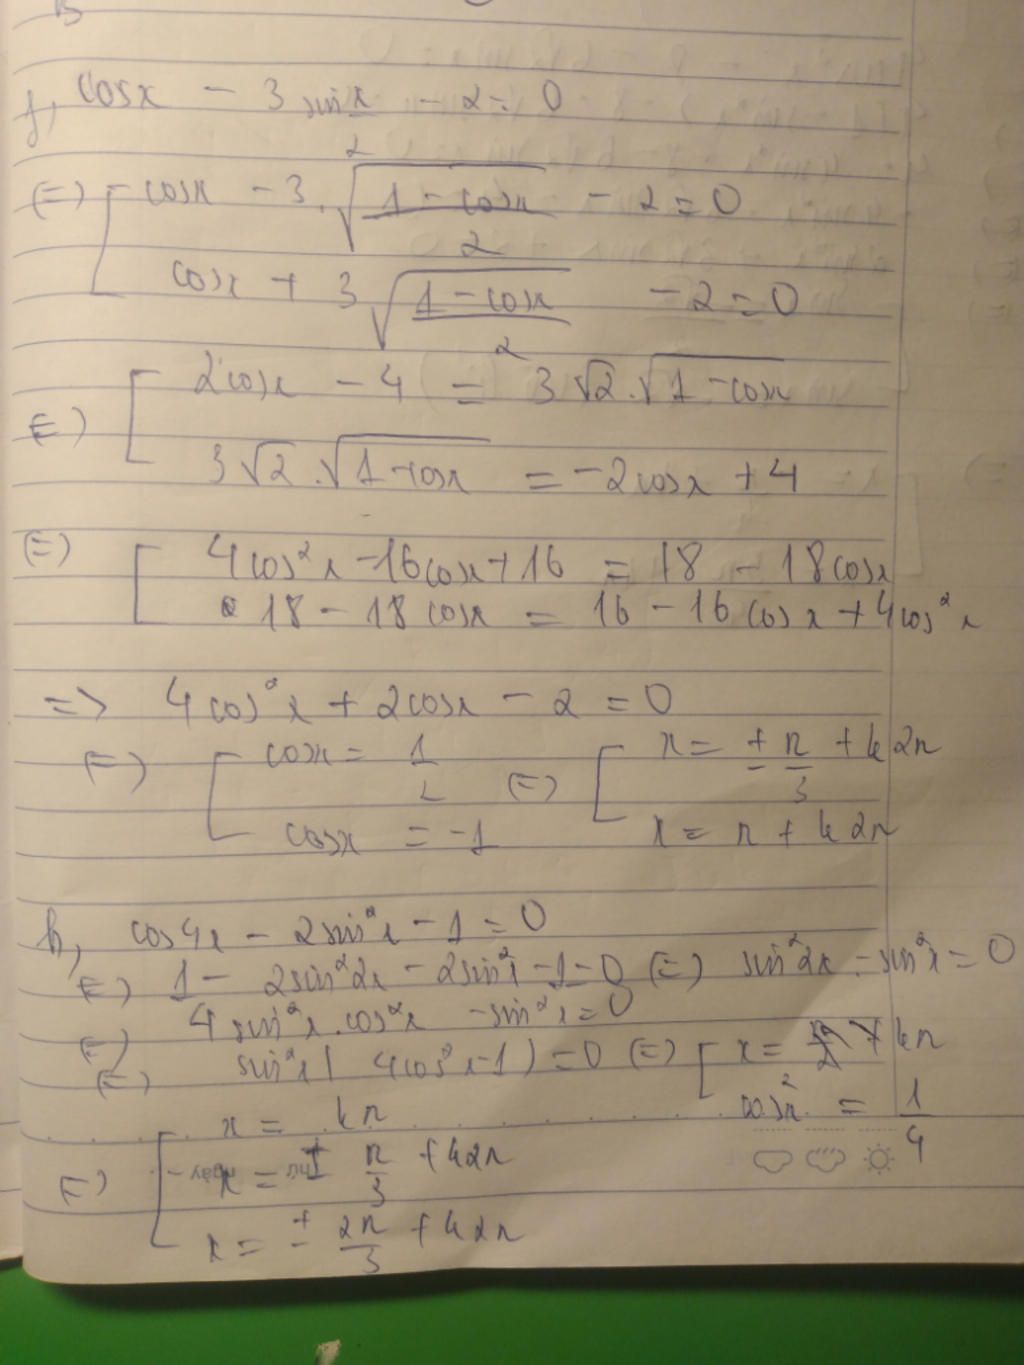 f, cosx - 3 sin x/2 - 2 = 0
(=) [ cosx - 3.√((1 - cosx)/2) - 2 = 0
cosx + 3√((1 - cosx)/2) - 2 = 0
(=) [ 2cosx - 4 = 3√2.√(1 - cosx)
3√2.√(1 - cosx) = -2cosx + 4
(=) [ 4cos²x - 16cosx + 16 = 18 - 18cosx
18 - 18cosx = 16 - 16cosx + 4cos²x
=> 4cos²x + 2cosx - 2 = 0
(=) [ cosx = 1/2 (=) [ x = ± π/3 + k2π
cosx = -1 x = π + k2π
h, cos4x - 2sin²x - 1 = 0
(=) 1 - 2sin²2x - 2sin²x - 1 = 0 (=) sin²2x - sin²x = 0
(=) 4sin²x.cos²x - sin²x = 0
(=) sin²x( 4cos²x - 1) = 0 (=) [ x = kπ
cos²x = 1/4
(=) [ x = kπ
x = ± π/3 + k2π
x = ± 2π/3 + k2π
Thứ
ngày